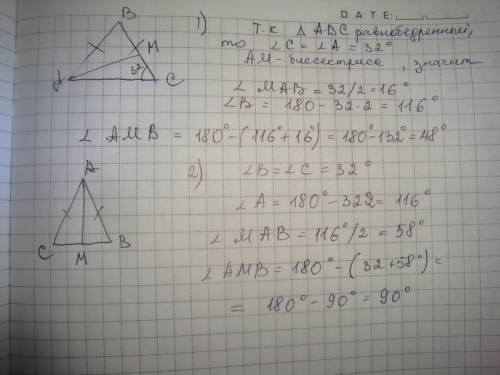 DATE:
B
M
A
32°
C
1) Т.к Δ ABC равнобедренный,
то ∠C = ∠A = 32°
AM - биссектриса, значит
∠ MAB = 32/2 = 16°
∠B = 180 - 32·2 = 116°
∠ AMB = 180° - (116° + 16°) = 180° - 132° = 48°
A
C
M
B
2) ∠B = ∠C = 32°
∠A = 180° - 32·2 = 116°
∠ MAB = 116°/2 = 58°
∠ AMB = 180° - (32 + 58°) =
= 180° - 90° = 90°